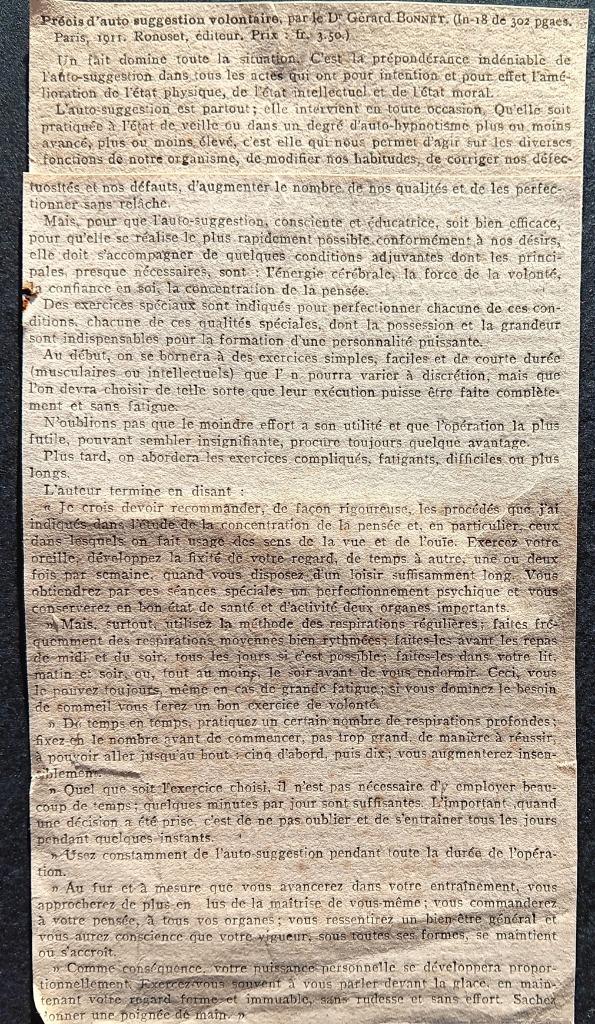 Précis d'auto suggestion volontaire, par le Dr Gérard BONNET. (In-18 de 302 pgaes.
Paris, 1911. Ronoset, éditeur. Prix : fr. 3.50.)
Un fait domine toute la situation. C'est la prépondérance indéniable de
l'auto-suggestion dans tous les actes qui ont pour intention et pour effet l'amé-
lioration de l'état physique, de l'état intellectuel et de l'état moral.
L'auto-suggestion est partout ; elle intervient en toute occasion. Qu'elle soit
pratiquée à l'état de veille ou dans un degré d'auto-hypnotisme plus ou moins
avancé, plus ou moins élevé, c'est elle qui nous permet d'agir sur les diverses
fonctions de notre organisme, de modifier nos habitudes, de corriger nos défec-
tuosités et nos défauts, d'augmenter le nombre de nos qualités et de les perfec-
tionner sans relâche.
Mais, pour que l'auto-suggestion, consciente et éducatrice, soit bien efficace,
pour qu'elle se réalise le plus rapidement possible conformément à nos désirs,
elle doit s'accompagner de quelques conditions adjuvantes dont les princi-
pales, presque nécessaires, sont : l'énergie cérébrale, la force de la volonté,
la confiance en soi, la concentration de la pensée.
Des exercices spéciaux sont indiqués pour perfectionner chacune de ces con-
ditions, chacune de ces qualités spéciales, dont la possession et la grandeur
sont indispensables pour la formation d'une personnalité puissante.
Au début, on se bornera à des exercices simples, faciles et de courte durée
(musculaires ou intellectuels) que l' n pourra varier à discrétion, mais que
l'on devra choisir de telle sorte que leur exécution puisse être faite complète-
ment et sans fatigue.
N'oublions pas que le moindre effort a son utilité et que l'opération la plus
futile, pouvant sembler insignifiante, procure toujours quelque avantage.
Plus tard, on abordera les exercices compliqués, fatigants, difficiles ou plus
longs.
L'auteur termine en disant :
« Je crois devoir recommander, de façon rigoureuse, les procédés que j'ai
indiqués dans l'étude de la concentration de la pensée et, en particulier, ceux
dans lesquels on fait usage des sens de la vue et de l'ouïe. Exercez votre
oreille, développez la fixité de votre regard, de temps à autre, une ou deux
fois par semaine, quand vous disposez d'un loisir suffisamment long. Vous
obtiendrez par ces séances spéciales un perfectionnement psychique et vous
conserverez en bon état de santé et d'activité deux organes importants.
» Mais, surtout, utilisez la méthode des respirations régulières ; faites fré-
quemment des respirations moyennes bien rythmées ; faites-les avant les repas
de midi et du soir, tous les jours si c'est possible ; faites-les dans votre lit,
matin et soir, ou, tout au moins, le soir avant de vous endormir. Ceci, vous
le pouvez toujours, même en cas de grande fatigue ; si vous dominez le besoin
de sommeil vous ferez un bon exercice de volonté.
» De temps en temps, pratiquez un certain nombre de respirations profondes ;
fixez-en le nombre avant de commencer, pas trop grand, de manière à réussir,
à pouvoir aller jusqu'au bout : cinq d'abord, puis dix ; vous augmenterez insen-
siblement.
» Quel que soit l'exercice choisi, il n'est pas nécessaire d'y employer beau-
coup de temps ; quelques minutes par jour sont suffisantes. L'important ,quand
une décision a été prise, c'est de ne pas oublier et de s'entraîner tous les jours
pendant quelques instants.
» Usez constamment de l'auto-suggestion pendant toute la durée de l'opéra-
tion.
» Au fur et à mesure que vous avancerez dans votre entraînement, vous
approcherez de plus en lus de la maîtrise de vous-même ; vous commanderez
à votre pensée, à tous vos organes ; vous ressentirez un bien-être général et
vous aurez conscience que votre vigueur, sous toutes ses formes, se maintient
ou s'accroît.
» Comme conséquence, votre puissance personnelle se développera propor-
tionnellement. Exercez-vous souvent à vous parler devant la glace, en main-
tenant votre regard ferme et immuable, sans rudesse et sans effort. Sachez
donner une poignée de main. »